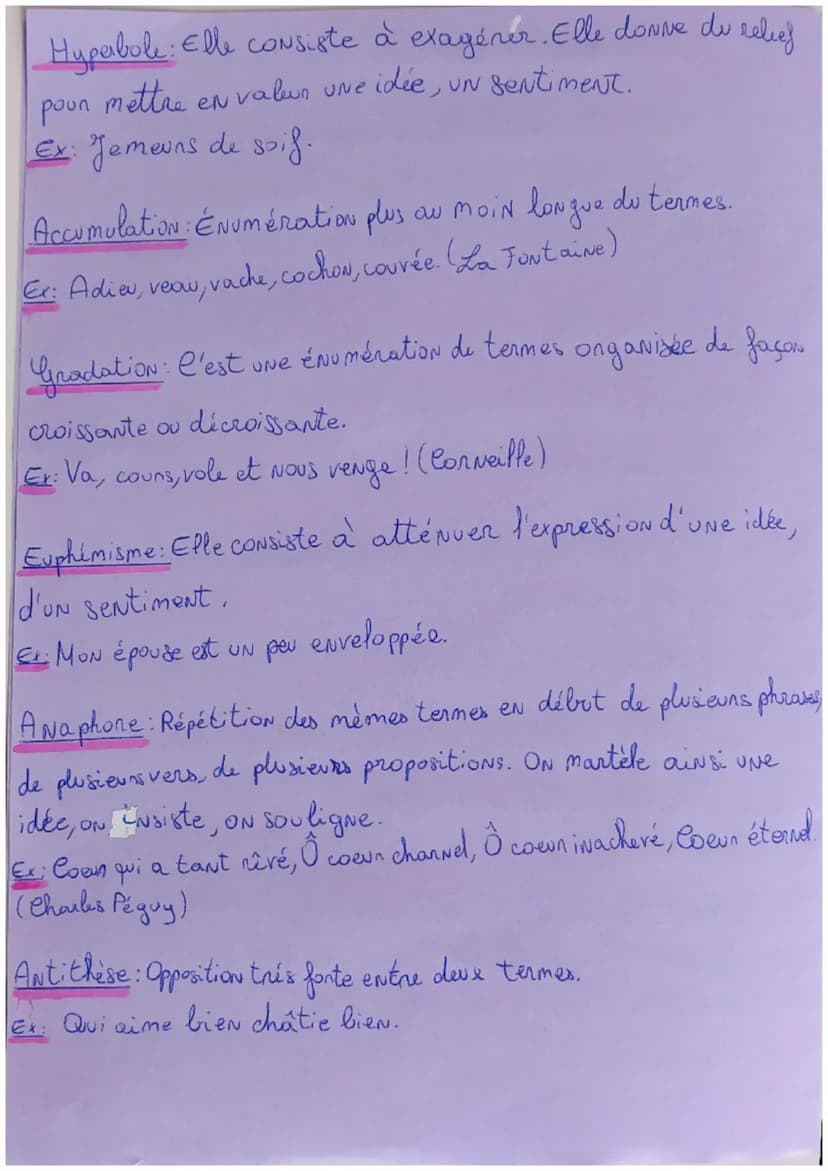 Hyperbole: Elle consiste à exagérér. Elle donne du relief
pour mettre en valeur une idée, un sentiment.
Ex: Je meurs de soif.
Accumulation: Énumération plus ou moin longue du termes.
Ex: Adieu, veau, vache, cochon, couvée. (La Fontaine)
Gradation: C'est une énumération de termes organisée de façon
croissante ou décroissante.
Ex: Va, cours, vole et nous venge! (Corneille)
Euphémisme: Elle consiste à atténuer l'expression d'une idée,
d'un sentiment.
Ex: Mon épouse est un peu enveloppée.
Anaphore: Répétition des mêmes termes en début de plusieurs phrases,
de plusieurs vers, de plusieurs propositions. On martèle ainsi une
idée, on insiste, on souligne.
Ex: Coeur qui a tant rêvé, Ô coeur charnel, Ô coeur inachevé, Coeur éternel.
(Charles Péguy)
Antithèse: Opposition très forte entre deux termes.
Ex: Qui aime bien châtie bien.